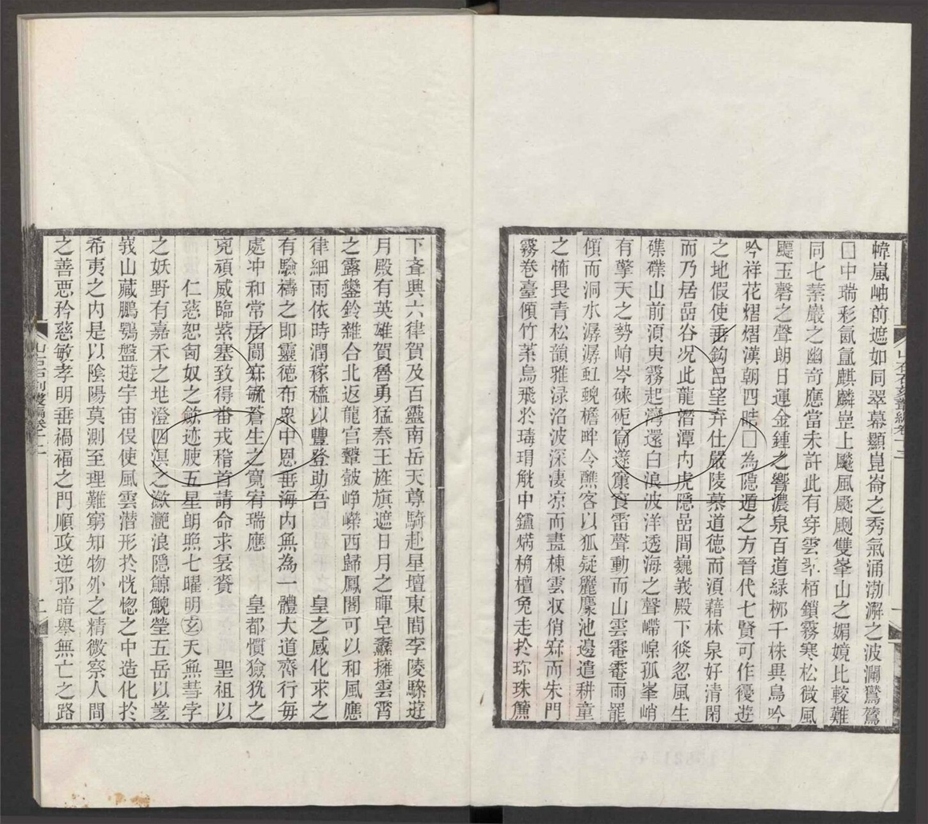 幃嵐岫前遮如同翠幕顯崑崙之秀氣涌渤澥之波瀾鷖鶿
囗中瑞彩氤氳麒麟崖上飈風颼颼雙峯山之媚嬈比較難
同七葉巖之幽奇應當未許此有穿雲翠栢鎖霧寒松微風
颺玉磬之聲朗日運金鍾之響濃泉百道緑栁千株異鳥吟
吟祥花熠熠漢朝四皓囗為隠遁之方晉代七賢可作優逰
之地假使垂鈎吕望弃仕嚴陵慕道徳而湏藉林泉好清閑
而乃居嵒谷况此龍潛潭内虎隠嵒間巍峩殿下倐忽風生
磼磼山前湏臾霧起灣還白浪波洋透海之聲嶀嵲孤峯峭
有擎天之勢峋岑硃砈窟邃飱食雷聲動而山雲靉靆雨罷
傾而洞水潺潺虹蜺檐畔令醮客以狐疑麗麋池邊遣耕童
之怖畏青松韻雅渌洺波深凄凉而畫棟雲収俏寂而朱門
霧卷臺傾竹葉鳥飛扵瑇瑁觥中鑪焫栴檀兔走扵珎珠簾
下斊興六六律賀及百靈南岳天尊騎赴星壇東間李陵騄逰
月殿有英雄賀魯勇猛秦王旌旗遮日月之暉皂纛擁雲霄
之露鑾鈴雜合北返龍宫鼙皷錚嶸西歸鳳閣可以和風應
律細雨依時潤稼穡以豐登助吾 皇之感化求之
有驗禱之即靈徳布衆中恩垂海内無為一體大道齊行毎
處冲和常居闃寂毓蒼生之寛宥瑞應 皇都慣獫狁之
兇頑威臨紫塞致得畨戎稽首請命求裒賫 聖祖以
仁慈恕匈奴之餘迹晐五星朗照七曜明玄天無彗孛
之妖野有嘉禾之地澄四溟之瀲灔浪隠鯨鯢瑩五岳以嵳
峩山藏鵬鶚盤逰宇宙伇使風雲潛形扵恍惚之中造化扵
希夷之内是以陰陽莫測至理難窮知物外之精微察人間
之善惡矜慈敏孝明垂禍福之門順政逆邪暗舉無亡之路